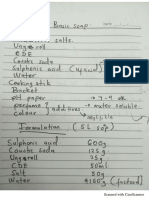 Basic soap
salts
Ungerol
CDE
Caustic soda
Sulphonic acid (upawa)
Water
Cooking stik
Bucket
pH paper → 7-9 ok
perfume } additives → water soluble
colour → negligible
Formulation (5L sop)
Sulphonic acid 600g
Caustic soda 125g
Ungerol 25g
CDE 50ml
Salt 50g
Water
Scanned with CamScanner